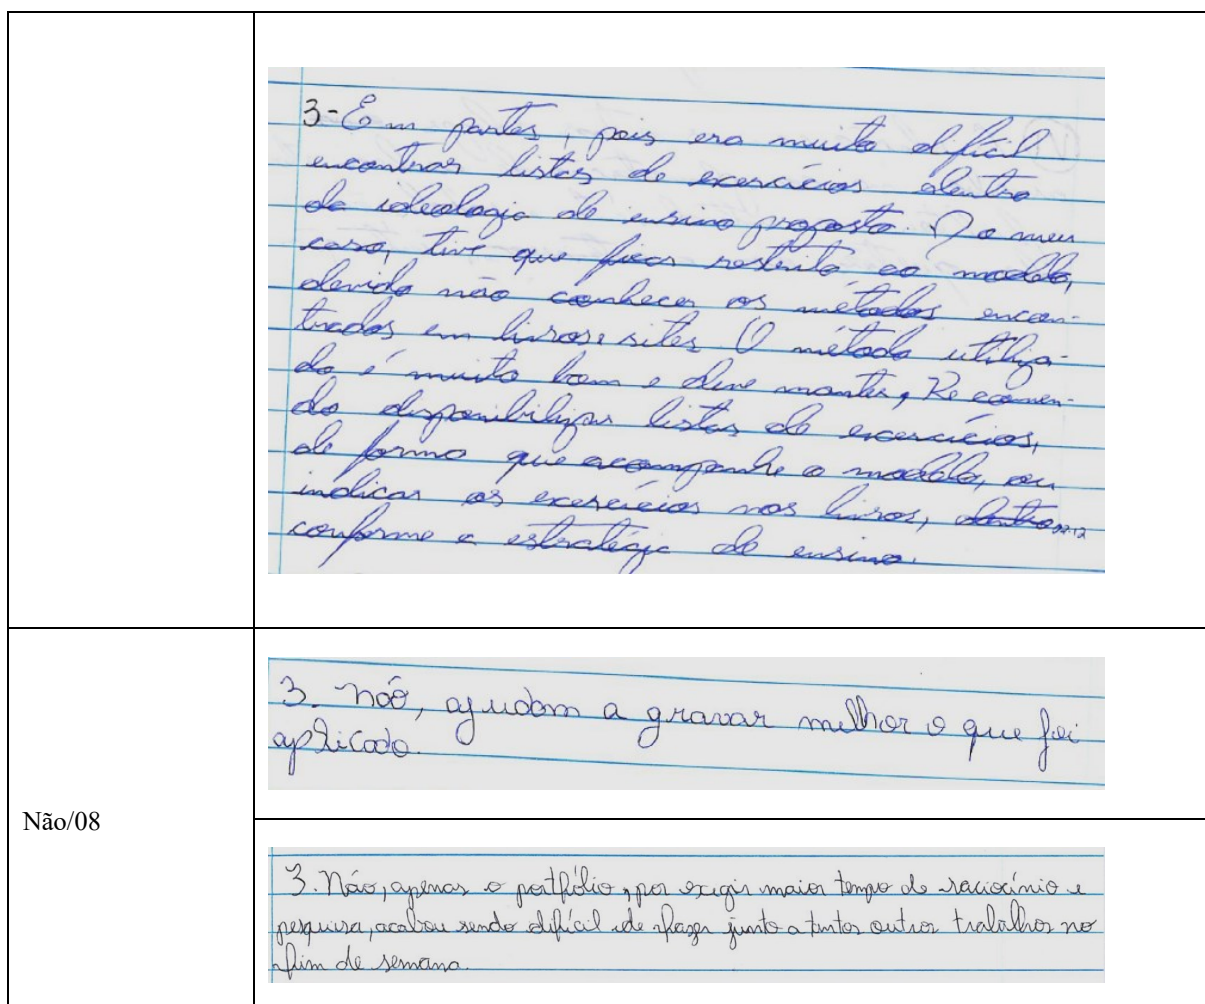 3- Em partes, pois era muito difícil
encontrar listas de exercícios dentro
da ideologia de ensino proposta. No meu
caso, tive que ficar restrito ao modelo,
devido não conhecer os métodos encon-
trados em livros e sites. O método utiliza-
do é muito bom e deve manter, Recomen-
do disponibilizar listas de exercícios,
de forma que acompanhe o modelo, ou
indicar os exercícios nos livros,
conforme a estratégia de ensino.
Não/08
3. Não, ajudam a gravar melhor o que foi
aplicado.
3. Não, apenas o portfólio, por exigir maior tempo de raciocínio e
pesquisa, acabou sendo difícil de fazer junto a tantos outros trabalhos no
fim de semana.